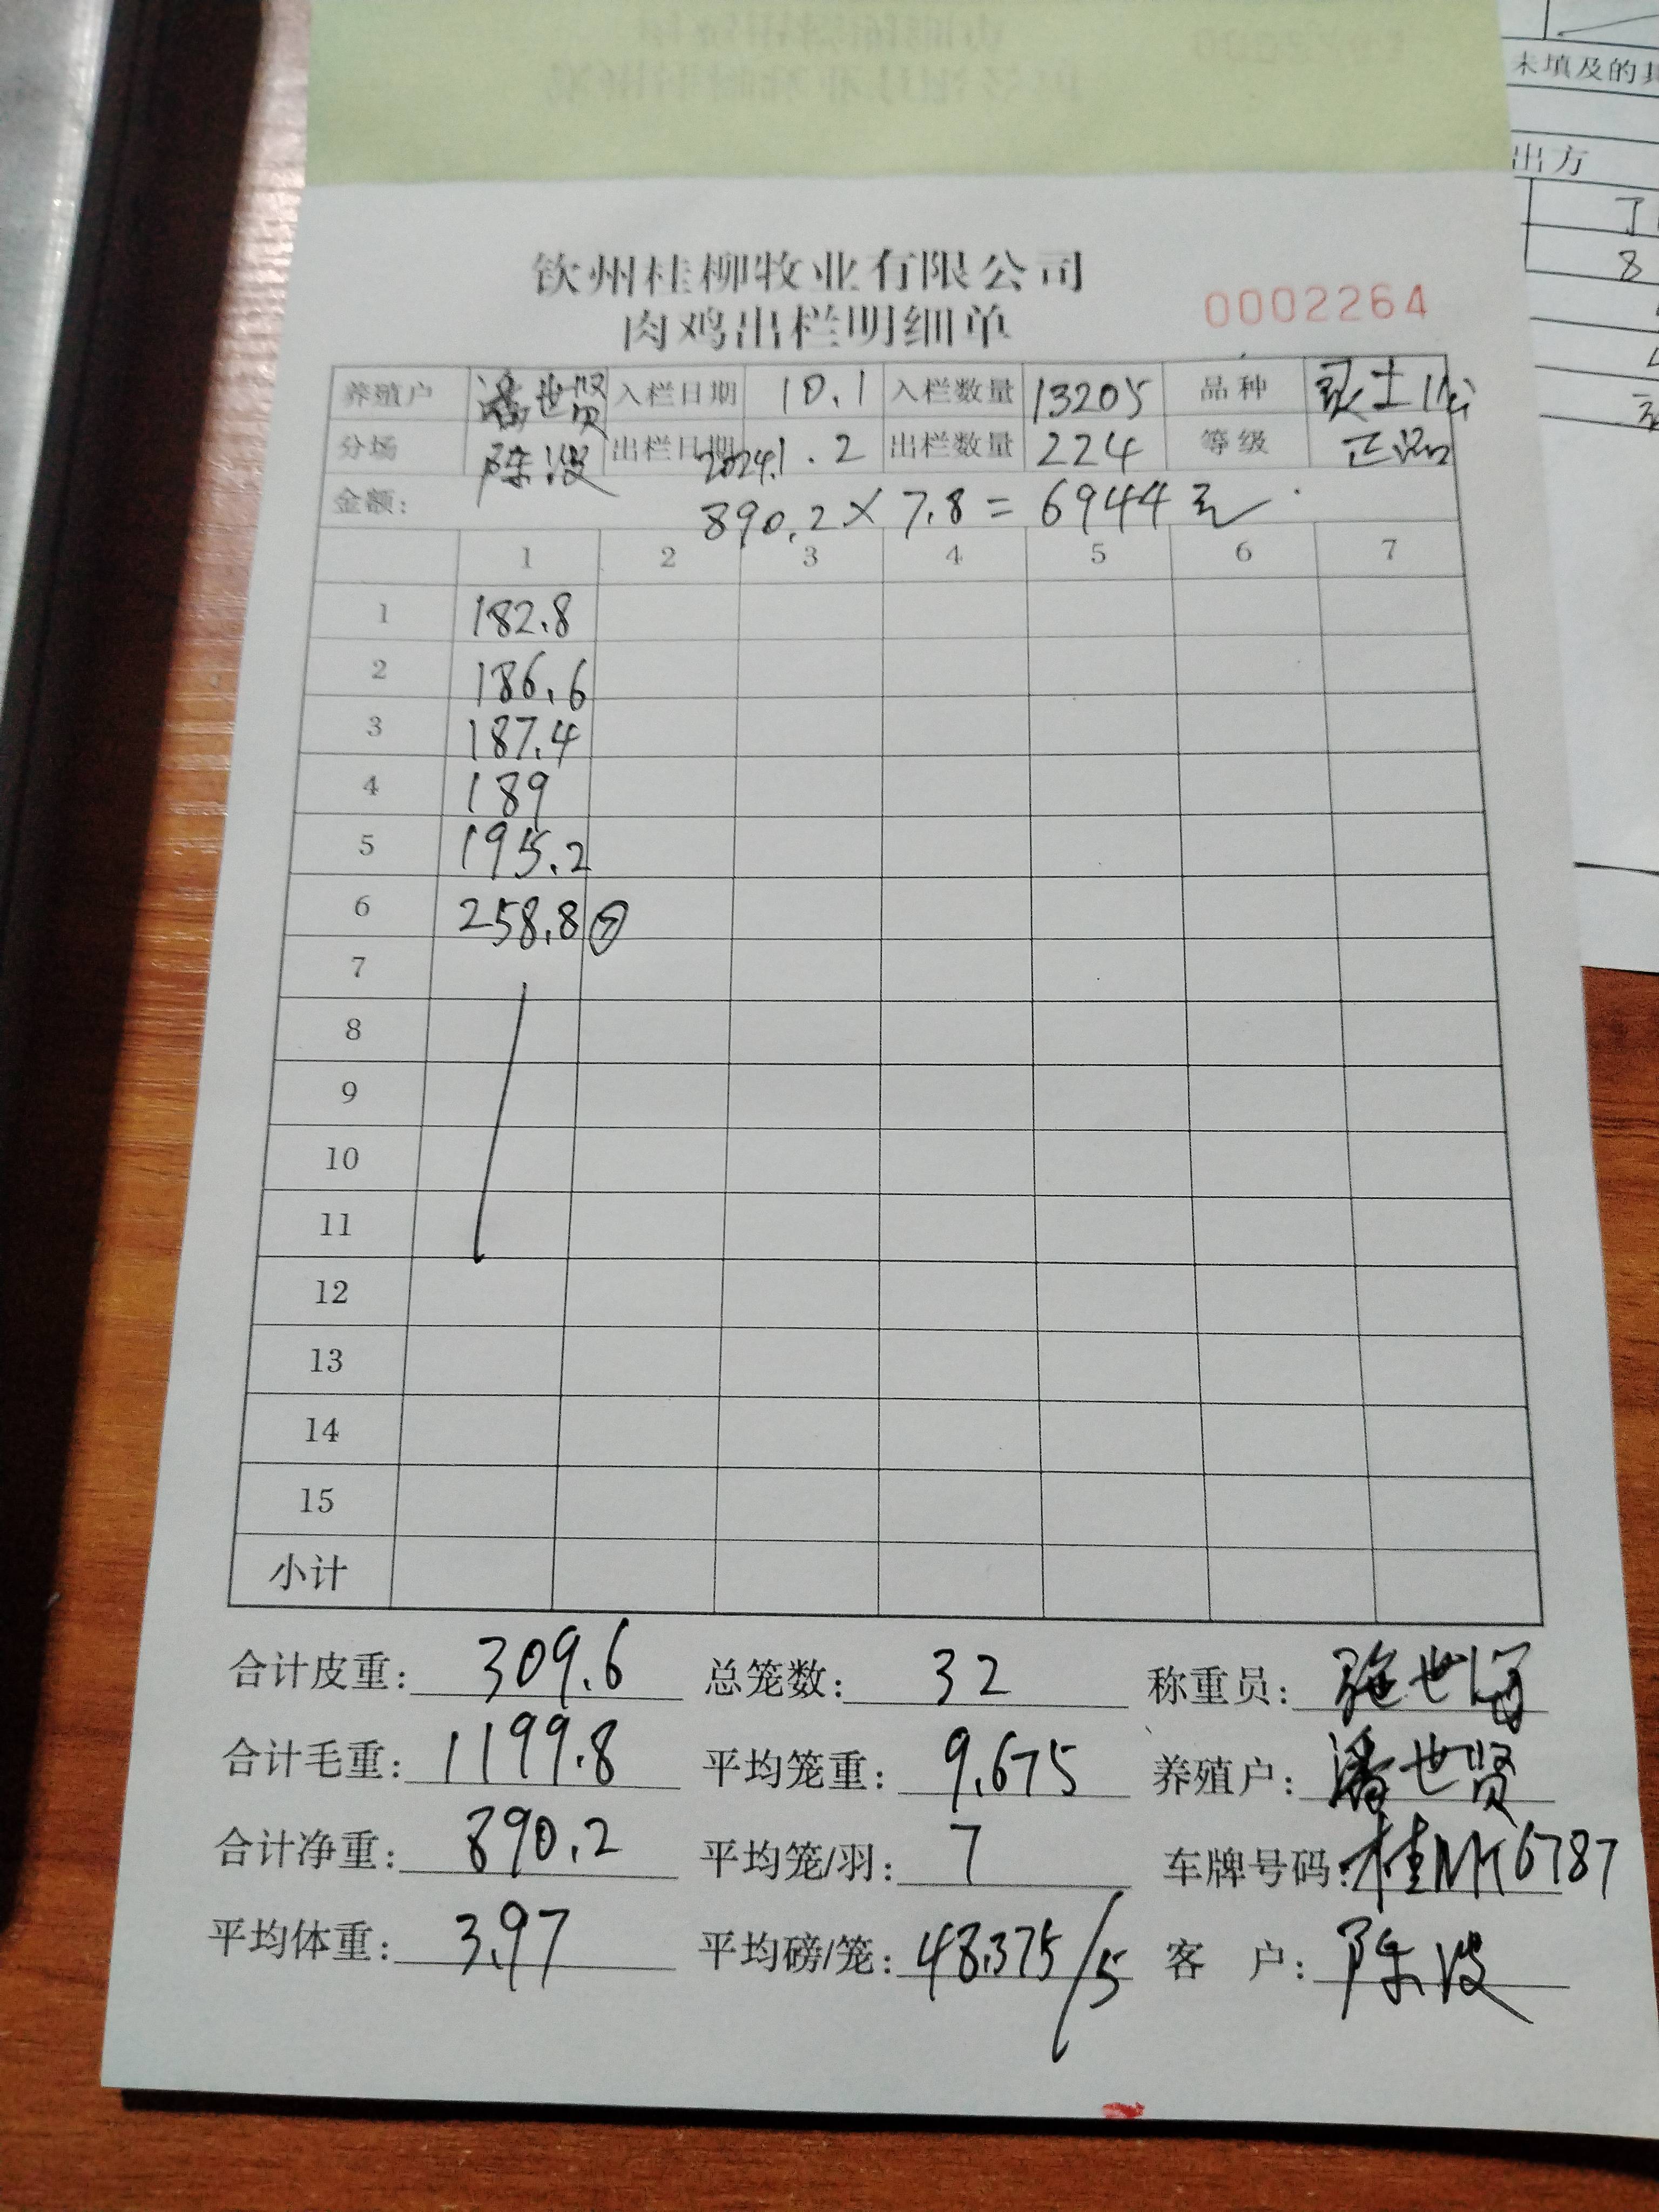 钦州桂柳牧业有限公司
肉鸡出栏明细单
0002264
养殖户 潘世贤 入栏日期 10.1 入栏数量 13205 品种 灵土
分场 陈波 出栏日期 2024.1.2 出栏数量 224 等级 正品
金额: 890.2×7.8=6944元
1 2 3 4 5 6 7
1 182.8
2 186.6
3 187.4
4 189
5 195.2
6 258.8 ⑦
7
8
9
10
11
12
13
14
15
小计
合计皮重: 309.6 总笼数: 32 称重员: 世
合计毛重: 1199.8 平均笼重: 9.675 养殖户: 潘世贤
合计净重: 890.2 平均笼/羽: 7 车牌号码: 桂NK6787
平均体重: 3.97 平均磅/笼: 48.375/5 客 户: 陈波
未填及的
出方
8